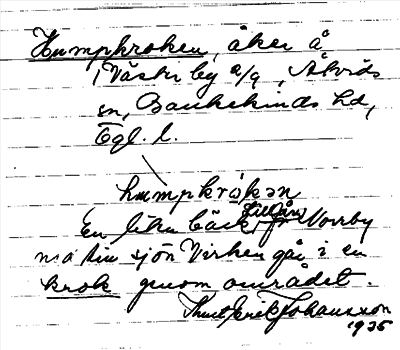 Humpkroken, åker å
Västerby a/g, Åtvids
sn, Bankekinds hd,
Ögl. l.
humpkrokən
En liten bäck från Norrby
till sjön Virken går i en
krok genom området.
Johansson
1935